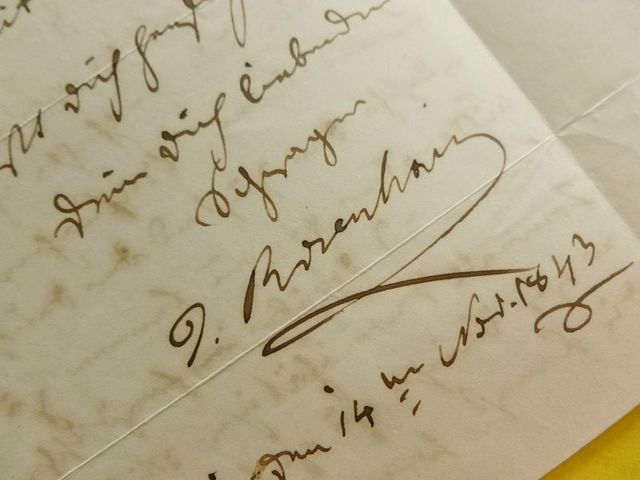 dich
Dein dich liebender
Schwager
J. Rosenhain
den 14ten Nov. 1843